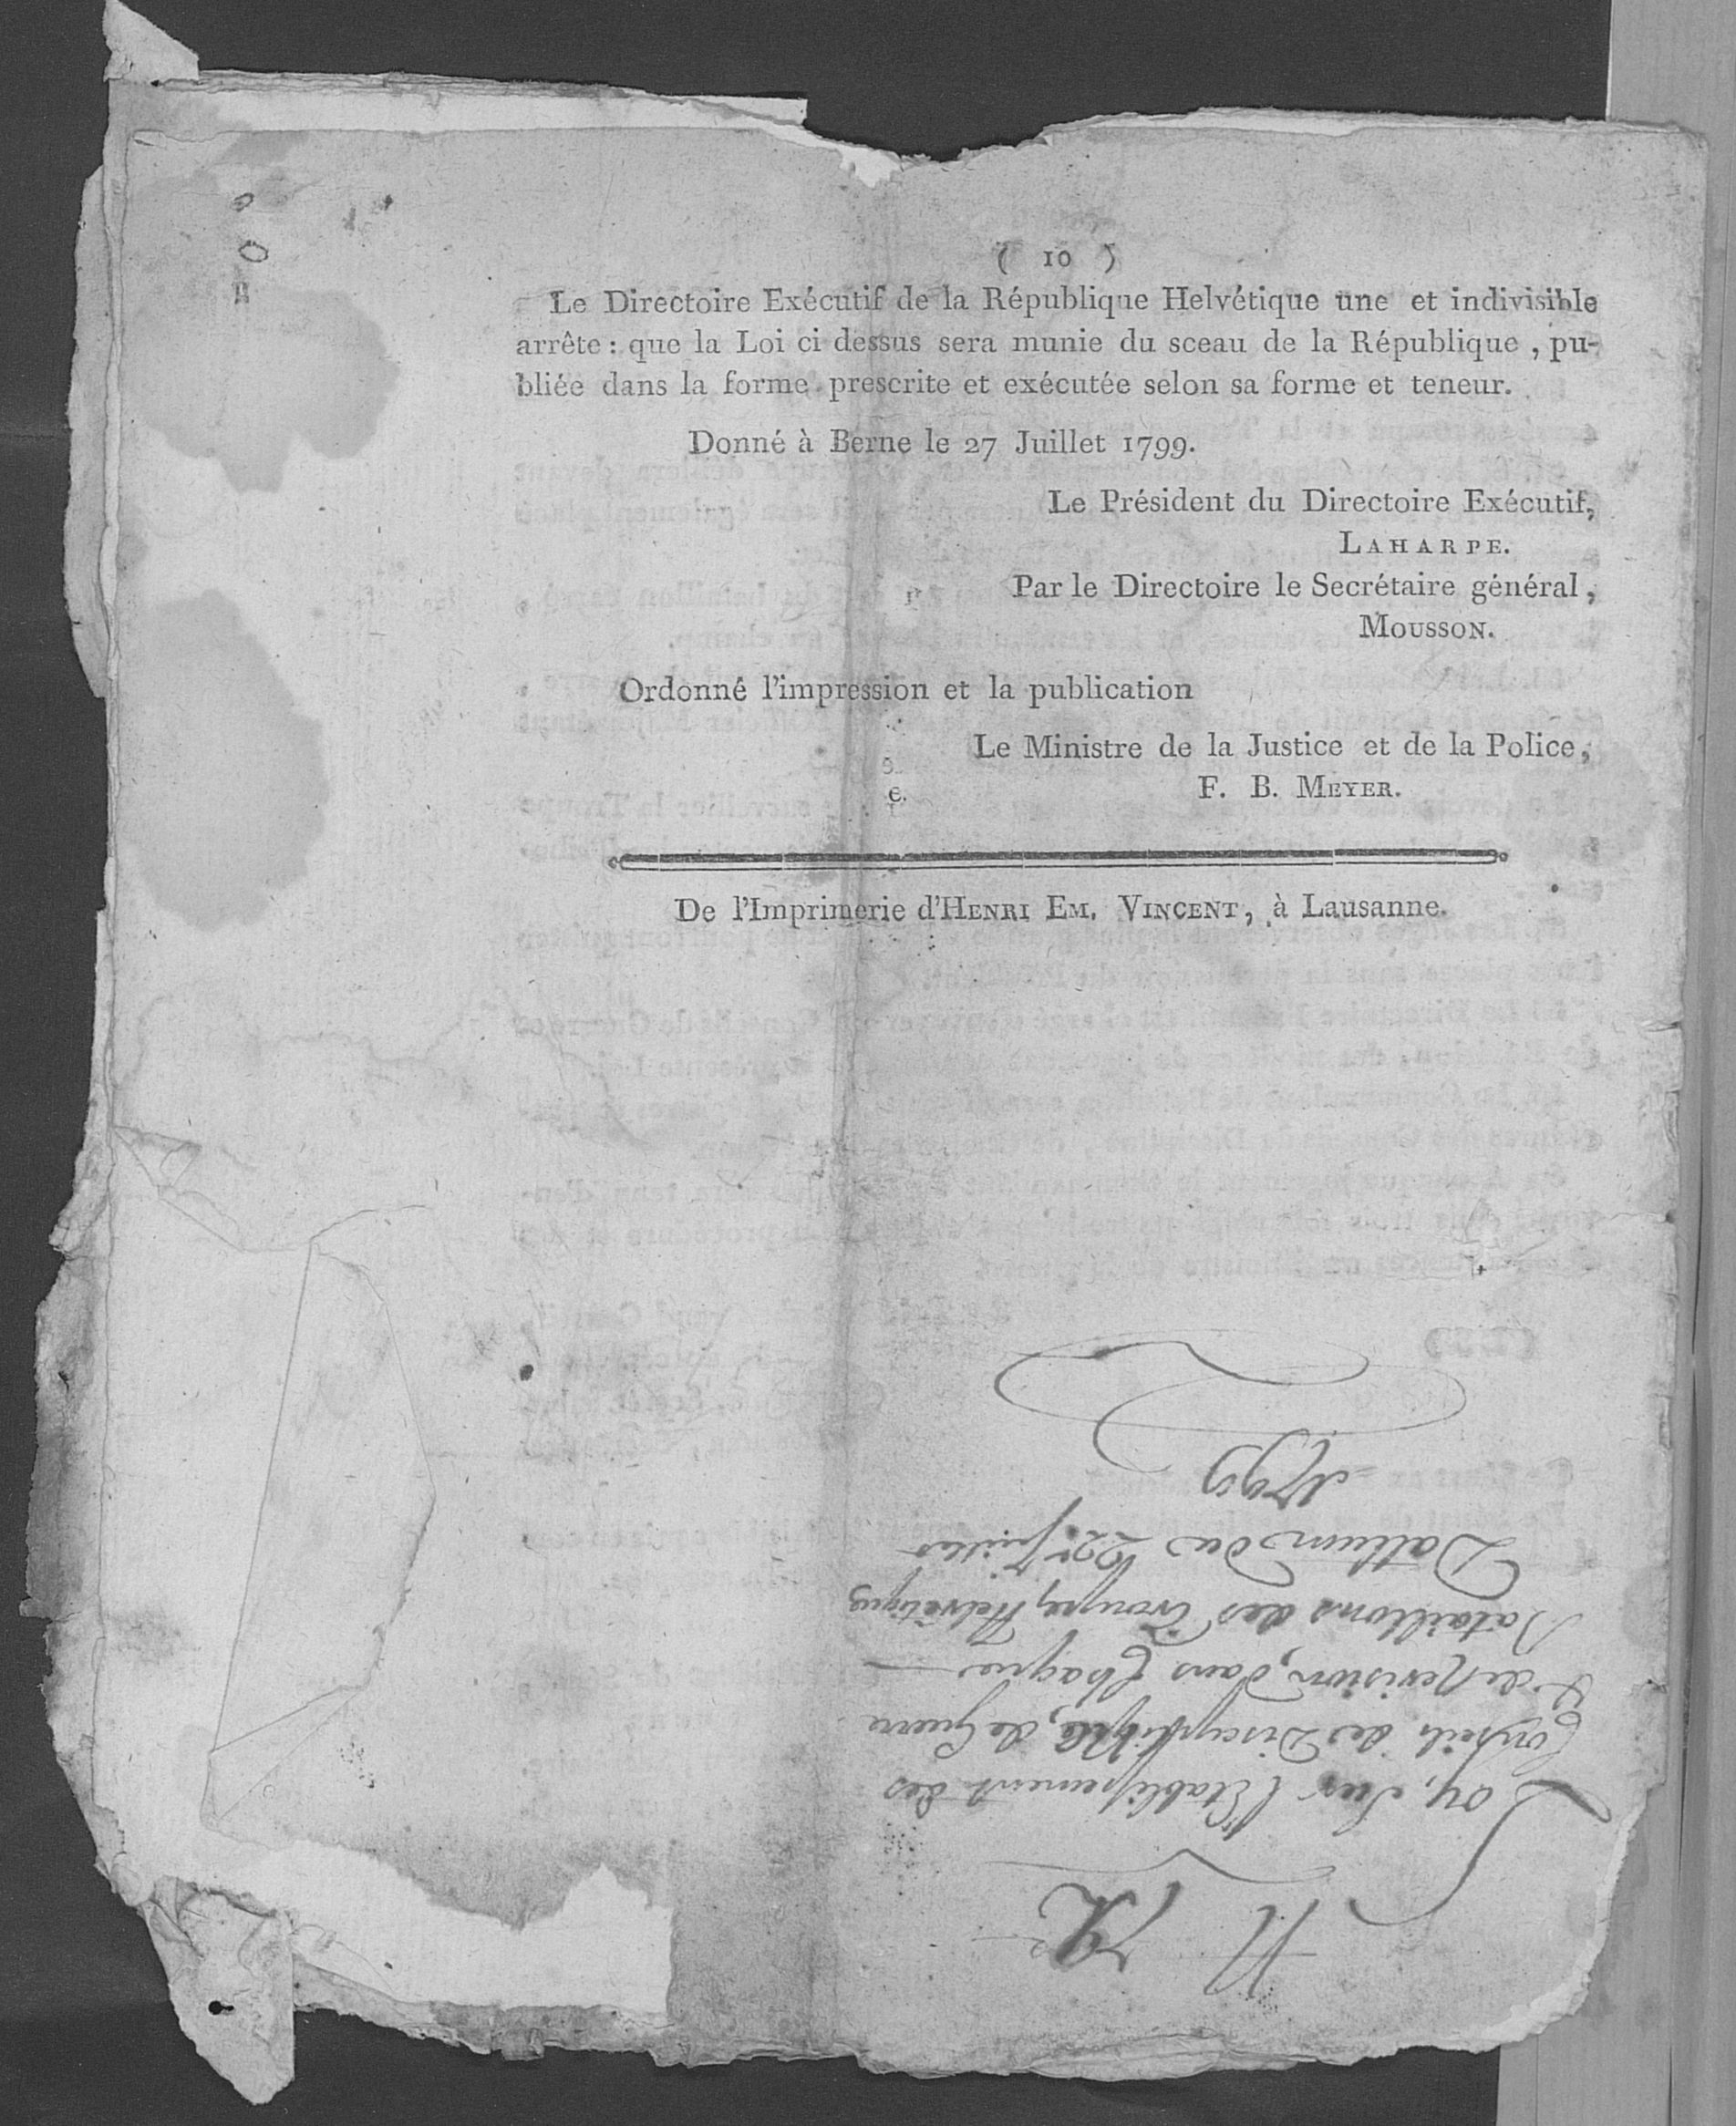 ( 10 )
Le Directoire Exécutif de la République Helvétique une et indivisible
arrête : que la Loi ci dessus sera munie du sceau de la République , pu-
bliée dans la forme prescrite et exécutée selon sa forme et teneur.
Donné à Berne le 27 Juillet 1799.
Le Président du Directoire Exécutif,
LAHARPE.
Par le Directoire le Secrétaire général,
MOUSSON.
Ordonné l'impression et la publication
Le Ministre de la Justice et de la Police,
F. B. MEYER.
De l'Imprimerie d'HENRI EM. VINCENT, à Lausanne.
N
Loy, Sur l'Etablissement des
Conseils de Discipline, de Guerre
& de Revision, dans Chaque
Bataillons des Troupes Helvétiques
Dattum du Juillet
1799